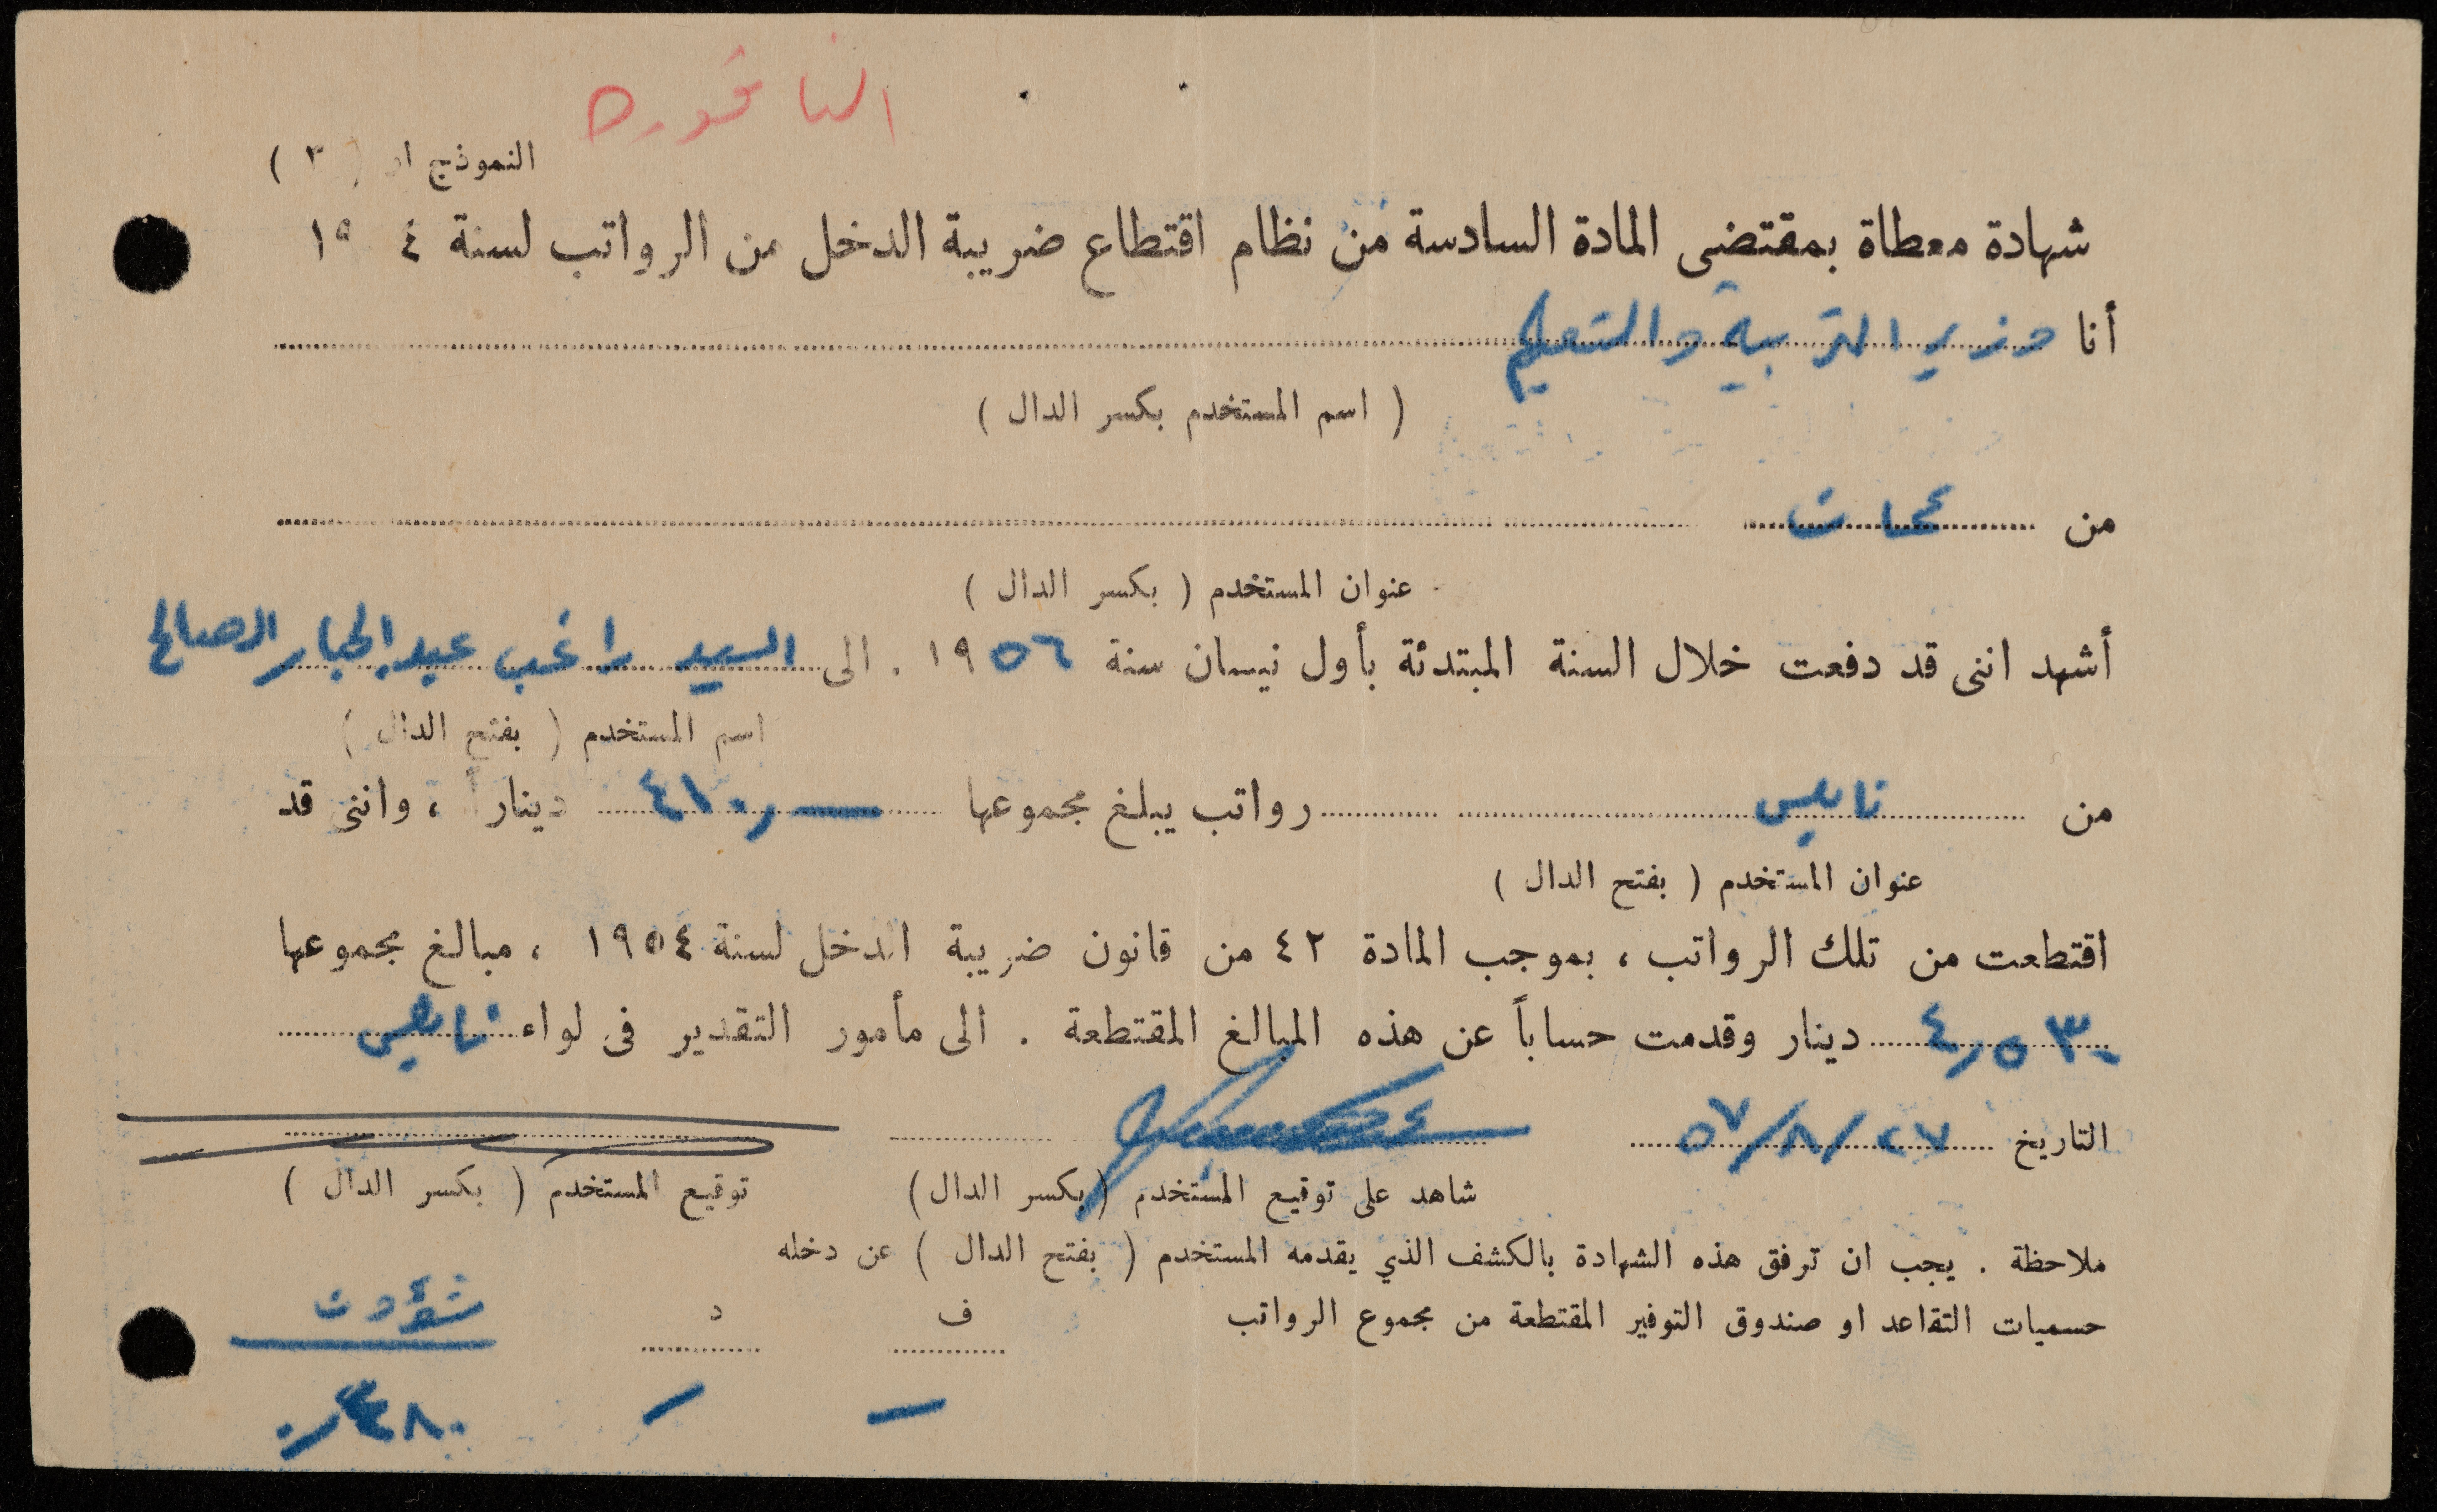 الناقوره
النموذج ار ( ٣ )
شهادة معطاة بمقتضى المادة السادسة من نظام اقتطاع ضريبة الدخل من الرواتب لسنة ١٩ ٤
أنا وزير التربية والتعليم
( اسم المستخدم بكسر الدال )
من عمان
عنوان المستخدم ( بكسر الدال )
أشهد اننى قد دفعت خلال السنة المبتدئة بأول نيسان سنة ١٩٥٦ . الى السيد راغب عبد الجبار الصالح
اسم المستخدم ( بفتح الدال )
من نابلس رواتب يبلغ مجموعها ٤١٠٫— ديناراً ، واننى قد
عنوان المستخدم ( بفتح الدال )
اقتطعت من تلك الرواتب ، بموجب المادة ٤٢ من قانون ضريبة الدخل لسنة ١٩٥٤ ، مبالغ مجموعها
٤٫٥٣٠ دينار وقدمت حساباً عن هذه المبالغ المقتطعة . الى مأمور التقدير فى لواء نابلس
التاريخ ٢٧/٨/٥٧
شاهد على توقيع المستخدم (بكسر الدال) توقيع المستخدم ( بكسر الدال )
ملاحظة . يجب ان ترفق هذه الشهادة بالكشف الذي يقدمه المستخدم ( بفتح الدال ) عن دخله
حسميات التقاعد او صندوق التوفير المقتطعة من مجموع الرواتب ف د
— —